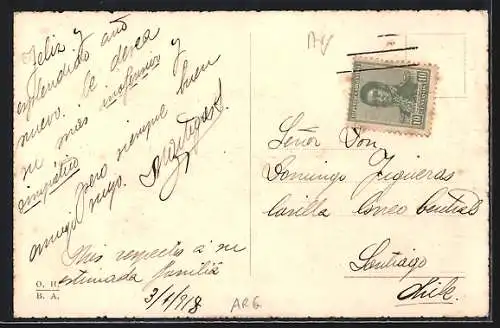 Feliz y
esplendido año
nuevo. le desea
su mas y
simpático pero siempre buen
amigo suyo.
Mis respectos á su
estimada familia
3/1/918
O. H.
B. A.
ARG
Señor Don
Domingo Figueras
Casilla Correo Central
Santiago
Chile.
10 10